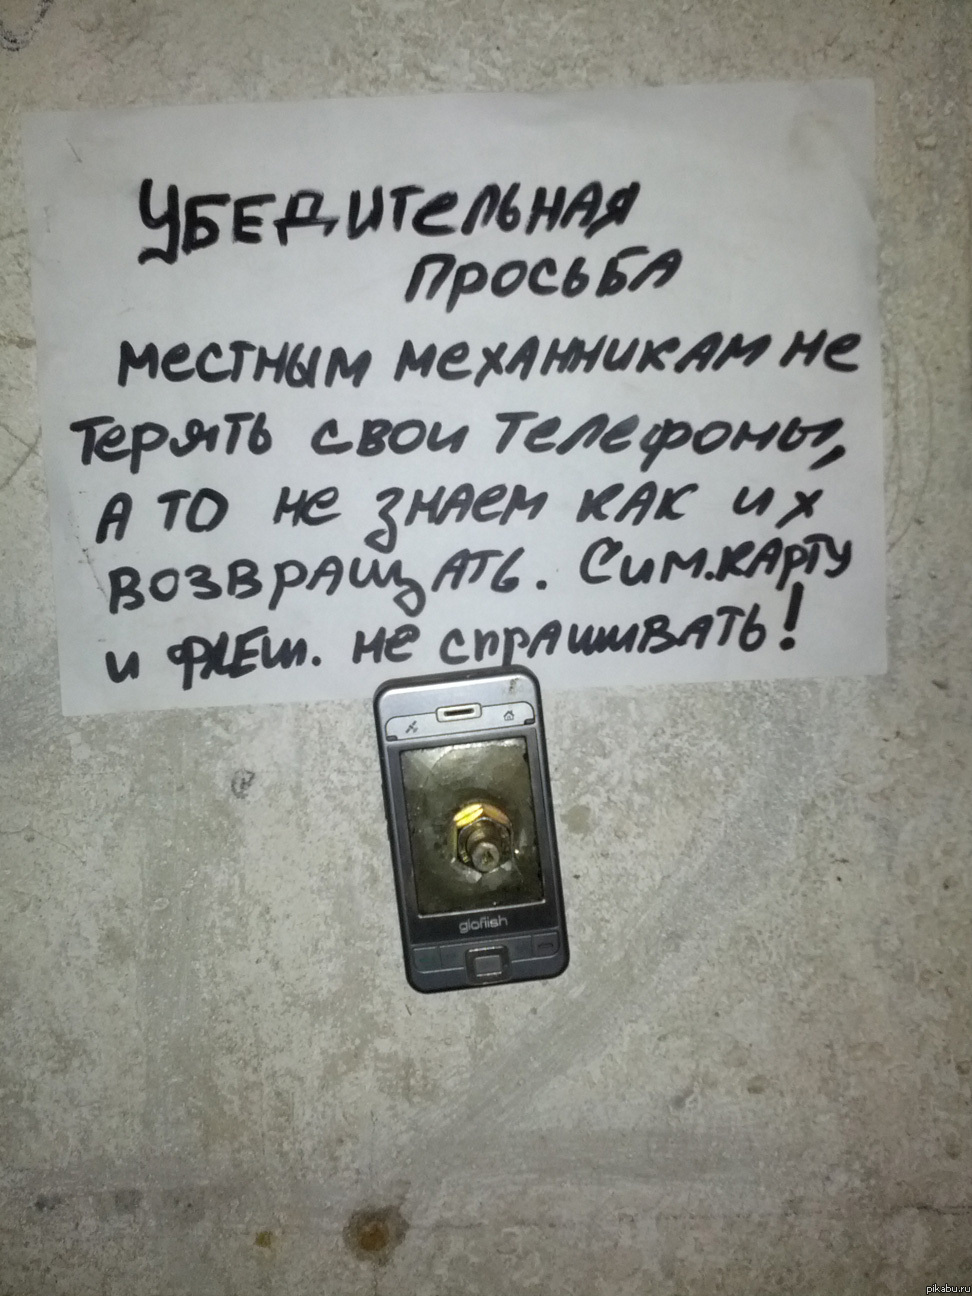 УБЕДИТЕЛЬНАЯ
ПРОСЬБА
МЕСТНЫМ МЕХАННИКАМ НЕ
ТЕРЯТЬ СВОИ ТЕЛЕФОНЫ,
А ТО НЕ ЗНАЕМ КАК ИХ
ВОЗВРАЩАТЬ. СИМ.КАРТУ
И ФЛЕШ. НЕ СПРАШИВАТЬ!
glofiish
pikabu.ru